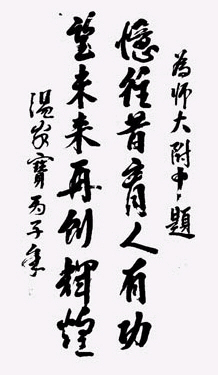 為师大附中題
憶往昔育人有功
望未来再创輝煌
温家寳丙子年